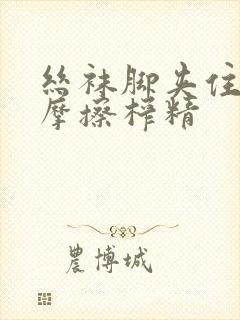 丝袜脚夹住
摩擦榨精
農博城